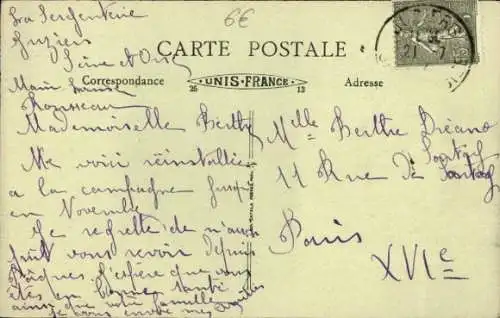 La Sergenterie
Seine et Oise
6€
CARTE POSTALE
Correspondance
UNIS-FRANCE
26
13
Adresse
Rousseau
Mademoiselle Berthe
Me voici réinstallée
a la campagne jusqu'
en Novembre
Je regrette de n'avoir
puit vous revoir depuis
Pâques j'espère que vous
êtes en bonne santé
ainsi que votre famille
je vous envoie mes
Melle Berthe
11 Rue de
Paris
XVIe